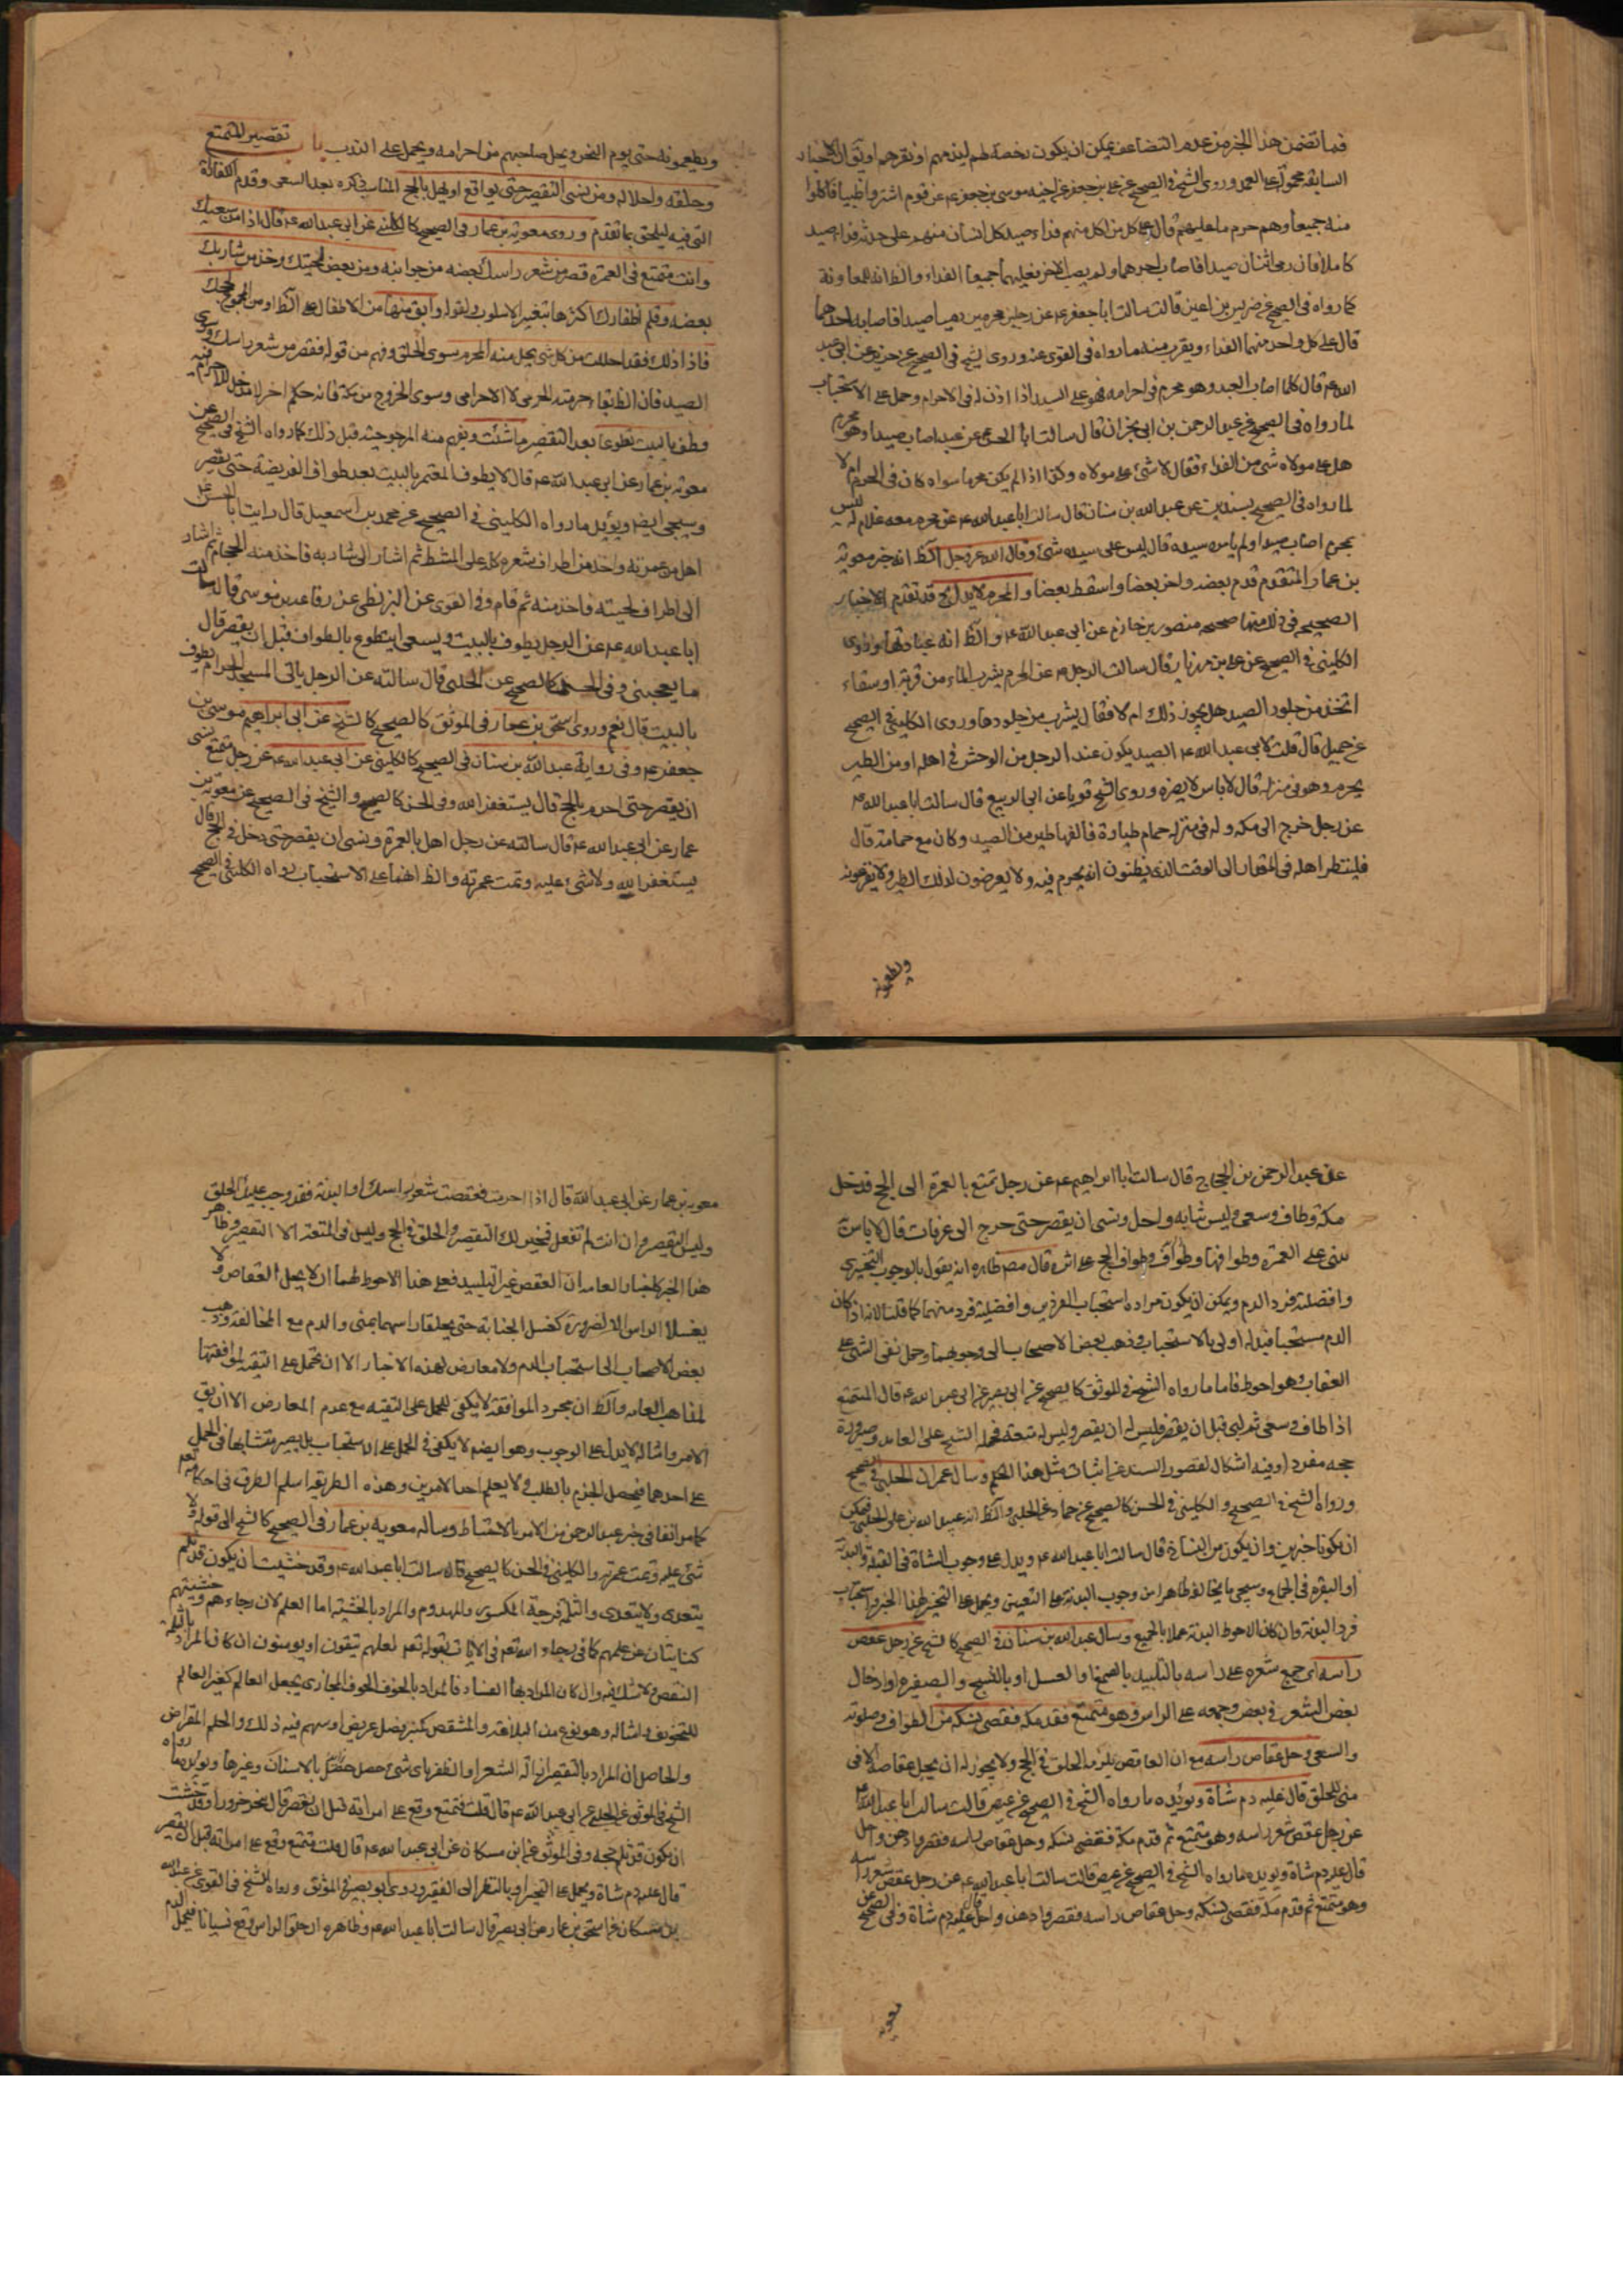 فما تضمن هذا الخبر من عدم التضاعف يمكن ان يكون رخصة لهم او يقال الاخبار
السابقة محمولة على العمد وروى الشيخ في الصحيح عن علي بن جعفر عن اخيه موسى بن جعفر ع عن قوم اشتروا ظبيا فاكلوا
منه جميعا وهم حرم ما عليهم قال على كل من اكل منهم فداء صيد كل انسان منهم على حدته فداء صيد
كاملا فان رمى اثنان صيدا فاصاب احدهما ولم يصب الاخر فعليهما جميعا الفداء والظ انه للمعاونة
كما رواه في الصحيح عن ضريس بن اعين قال سالت ابا جعفر ع عن رجلين محرمين رميا صيدا فاصابه احدهما
قال على كل واحد منهما الفداء ويقرب منه ما رواه في القوى عنه وروى الشيخ في الصحيح عن حريز عن ابي عبد
الله ع قال كلما اصاب العبد وهو محرم في احرامه فهو على السيد اذا اذن له في الاحرام وحمل على الاستحباب
لما رواه في الصحيح عن عبد الرحمن بن ابي نجران قال سالت ابا الحسن ع عن عبد اصاب صيدا وهو محرم
هل على مولاه شئ من الفداء فقال لا شئ على مولاه وكذا اذا لم يكن محرما سواء كان في الحرام ام لا
لما رواه في الصحيح بسندين عن عبد الله بن سنان قال سالت ابا عبد الله ع عن محرم معه غلام له ليس
بمحرم اصاب صيدا ولم يامره سيده قال ليس على سيده شئ وقال الله عز وجل الظ انه خبر معوية
بن عمار المتقدم قدم بعضه واخر بعضا واسقط بعضا والمحرم لا يدل الخ قد تقدم الاخبار
الصحيحة في ذلك منها صحيحة منصور بن حازم عن ابي عبد الله ع والظ انه عبارتها وروى
الكليني في الصحيح عن علي بن مهزيار قال سالت الرجل ع عن المحرم يشرب الماء من قربة او سقاء
اتخذ من جلود الصيد هل يجوز ذلك ام لا فقال يشرب من جلودها وروى الكليني في الصحيح
عن جميل قال قلت لابي عبد الله ع الصيد يكون عند الرجل من الوحش في اهله او من الطير
يحرم وهو في منزله قال لا باس لا يضره وروى الشيخ قويا عن ابي الربيع قال سالت ابا عبد الله ع
عن رجل خرج الى مكة وله في منزله حمام طيارة فالفها طير من الصيد وكان مع حمامه قال
فلينظر اهله في المقدار الى الوقت الذي يظنون انه يحرم فيه ولا يعرضون لذلك الطير ولا يفزعونه
ويطعمونه
ويطعمونه حتى يوم النحر ويحل صاحبهم من احرامه ويحمل على الندب باب تقصير المتمتع
وحلقه واحلاله ومن نسى التقصير حتى يواقع او يهل بالحج المناسب ذكره بعد السعى وقدم الكفارة
التي فيه ليلحق بما تقدم وروى معوية بن عمار في الصحيح كالكليني عن ابي عبد الله ع قال اذا فرغت من سعيك
وانت متمتع في العمرة قصر من شعر راسك بعضه من جوانبه ومن بعض لحيتك وخذ من شاربك
بعضه وقلم اظفارك اكثرها بتغيير الاسلوب ولقوله وابق منها من الاطفال على الظ او من المجموع لحجك
فاذا فعلت ذلك فقد احللت من كل شئ يحل منه المحرم سوى الحلق وفهم من قوله فقصر من شعر راسك وسوى
الصيد فان الظ بقاء حرمته الحرمى لا الاحرامى وسوى الخروج من مكة فانه حكم اخر
وطف بالبيت تطوعا بعد التقصير ما شئت ويفهم منه المرجوحية قبل ذلك كما رواه الشيخ في الصحيح عن
معوية بن عمار عن ابي عبد الله ع قال لا يطوف المعتمر بالبيت بعد طواف الفريضة حتى يقصر
وسيجئ ايضا ويؤيد ما رواه الكليني في الصحيح عن محمد بن اسمعيل قال رايت ابا الحسن ع
احل من عمرته واخذ من اطراف شعره كله على المشط ثم اشار الى شاربه فاخذ منه الحجام ثم اشار
الى اطراف لحيته فاخذ منه ثم قام وفي القوى عن البزنطى عن رفاعة بن موسى قال سالت
ابا عبد الله ع عن الرجل يطوف بالبيت ويسعى ايتطوع بالطواف قبل ان يقصر قال
ما يعجبنى وفي الحسن كالصحيح عن الحلبى قال سالته عن الرجل ياتى المسجد الحرام يطوف
بالبيت قال نعم وروى اسحق بن عمار في الموثق كالصحيح كالشيخ عن ابي ابراهيم موسى بن
جعفر ع وفي رواية عبد الله بن سنان في الصحيح كالكليني عن ابي عبد الله ع عن رجل متمتع نسى
ان يقصر حتى احرم بالحج قال يستغفر الله وفي الحسن كالصحيح والشيخ في الصحيح عن معوية بن
عمار عن ابي عبد الله ع قال سالته عن رجل اهل بالعمرة ونسى ان يقصر حتى دخل في الحج قال
يستغفر الله ولا شئ عليه وتمت عمرته والظ انهما على الاستحباب رواه الكليني في الصحيح
عن عبد الرحمن بن الحجاج قال سالت ابا ابراهيم ع عن رجل تمتع بالعمرة الى الحج فدخل
مكة وطاف وسعى ولبس ثيابه واحل ونسى ان يقصر حتى خرج الى عرفات قال لا باس به
يبنى على العمرة وطوافها وطواف الحج على اثره قال مصر ظاهره انه يقول بالوجوب التخييرى
وافضلية فرد الدم ويمكن ان يكون مراده استحباب الفردين وافضلية فرد منهما كما قلنا لانه اذا كان
الدم مستحبا فبدله اولى بالاستحباب وذهب بعض الاصحاب الى وجوبهما وحمل نفى الشئ على
العقاب وهو احوط فاما ما رواه الشيخ في الموثق كالصحيح عن ابي بصير عن ابي عبد الله ع قال المتمتع
اذا طاف وسعى ثم لبى قبل ان يقصر فليس له ان يقصر وليس له متعة فحمله الشيخ على العامد وصيرورة
حجه مفردا وفيه اشكال لقصور السند عن اثبات مثل هذا الحكم وسال عمران الحلبى في الصحيح
ورواه الشيخ في الصحيح والكليني في الحسن كالصحيح عن حماد عن الحلبى والظ انه عبيد الله بن على الحلبى فيمكن
ان يكونا خبرين وان يكون من النساخ قال سالت ابا عبد الله ع ويدل على وجوب الشاة في القبلة والبدنة
او البقرة في الجماع وسيجئ ما يخالف ظاهرا من وجوب البدنة على التعيين ويحمل على التخيير لهذا الخبر واستحباب
فرد البدنة وان كان الاحوط البدنة عملا بالجميع وسال عبد الله بن سنان في الصحيح كالشيخ عن رجل عقص
راسه اى جمع شعره على راسه بالتلبيد بالصمغ او العسل او بالنسج والضفيرة او ادخال
بعض الشعر في بعض وجمعه على الراس وهو متمتع فقدم مكة فقضى نسكه من الطواف وصلوته
والسعى وحل عقاص راسه مع ان العاقص يلزمه الحلق في الحج ولا يجوز له ان يحل عقاصه الا في
منى للحلق قال عليه دم شاة ويؤيده ما رواه الشيخ في الصحيح عن عيص قال سالت ابا عبد الله ع
عن رجل عقص شعر راسه وهو متمتع ثم قدم مكة فقضى نسكه وحل عقاص راسه فقصر وادهن واحل
قال عليه دم شاة ويؤيده ما رواه الشيخ في الصحيح عن عيص قال سالت ابا عبد الله ع عن رجل عقص شعر راسه
وهو متمتع ثم قدم مكة فقضى نسكه وحل عقاص راسه فقصر وادهن واحل قال عليه دم شاة وفي الصحيح عن
معوية
معوية بن عمار عن ابي عبد الله قال اذا احرمت فعقصت شعر راسك او لبدته فقد وجب عليك الحلق
وليس لك التقصير وان انت لم تفعل فمخير لك التقصير والحلق في الحج وليس في المتعة الا التقصير وظاهر
هذا الخبر كاخبار العامة ان العقص غير التلبيد فعلى هذا الاحوط لهما ان لا يحل العقاص ولا
يغسلا الراس الا لضرورة كغسل الجنابة حتى يحلقا راسهما بمنى والدم مع المخالفة وذهب
بعض الاصحاب الى استحباب الدم ولا معارض لهذه الاخبار الا ان تحمل على التقية لموافقتها
لمذاهب العامة والظ ان مجرد الموافقة لا يكفى للحمل على التقية مع عدم المعارض الا ان يق
الامر وامثاله لا يدل على الوجوب وهو ايضا لا يكفى في الحمل على الاستحباب بل يصير متشابها في الحمل
على احدهما فيحصل الجزم بالطلب ولا يعلم احد الامرين وهذه الطريقة اسلم الطرق في احكامهم
كما مر انفا في خبر عبد الرحمن من الامر بالاحتياط وساله معوية بن عمار في الصحيح كالشيخ الى قوله ولا
شئ عليه وتمت عمرته والكليني في الحسن كالصحيح قال سالت ابا عبد الله ع وقد خشيت ان يكون قد ثلم
يتعدى ولا يتعدى والثلمة فرجة المكسور والمهدوم والمراد بالخشية اما العلم لان رجاءهم وخشيتهم
كنايتان عن علمهم كما في رجاء الله تع في الايات بقوله تع لعلهم يتقون او يؤمنون ان كان المراد بالثلمة
النقص ولا شك فيه وان كان المراد بها الفساد فالمراد بالخوف الخوف المجازى يجعل العالم كغير العالم
للتخويف وامثاله وهو نوع من البلاغة والمشقص كمنبر نصل عريض او سهم فيه ذلك والجلم المقراض
والحاصل ان المراد بالتقصير ازالة الشعر او الظفر باى شئ حصل حتى بالاسنان وغيرها ويؤيده ما رواه
الشيخ في الموثق عن الحلبى عن ابي عبد الله ع قال قلت متمتع وقع على امراته قبل ان يقصر قال ينحر جزورا وقد خشيت
ان يكون قد ثلم حجه وفي الموثق عن ابن مسكان عن ابي عبد الله ع قال قلت متمتع وقع على امراته قبل ان يقصر
قال عليه دم شاة ويحمل على التخيير او بالنظر الى الفقير وروى ابو بصير في الموثق ورواه الشيخ في القوى عن عبد الله
بن مسكان عن اسحق بن عمار عن ابي بصير قال سالت ابا عبد الله ع وظاهره ان حلق الراس وقع نسيانا فيحمل الدم